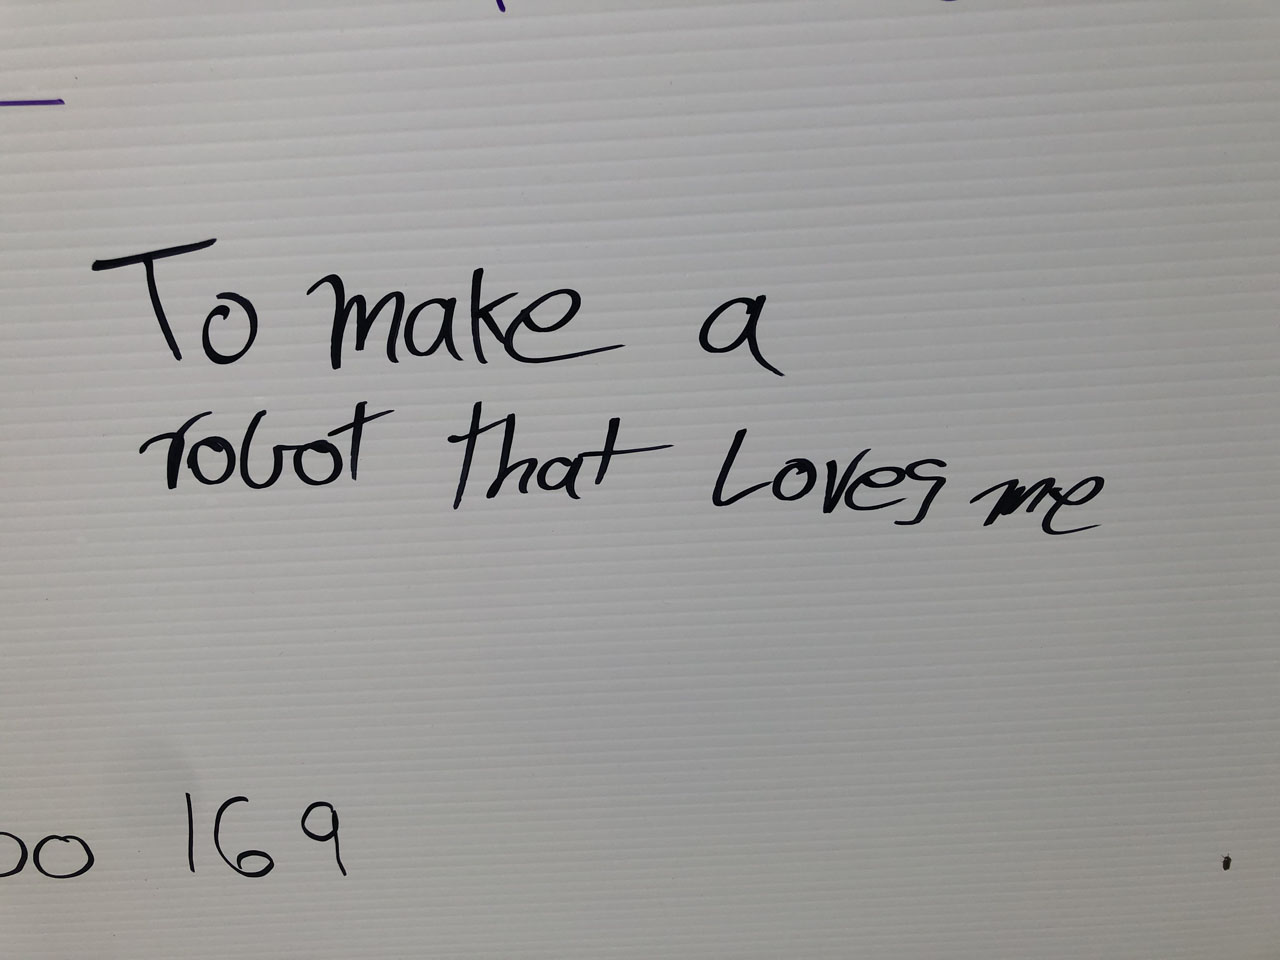 To make a
robot that Loves me
00 169